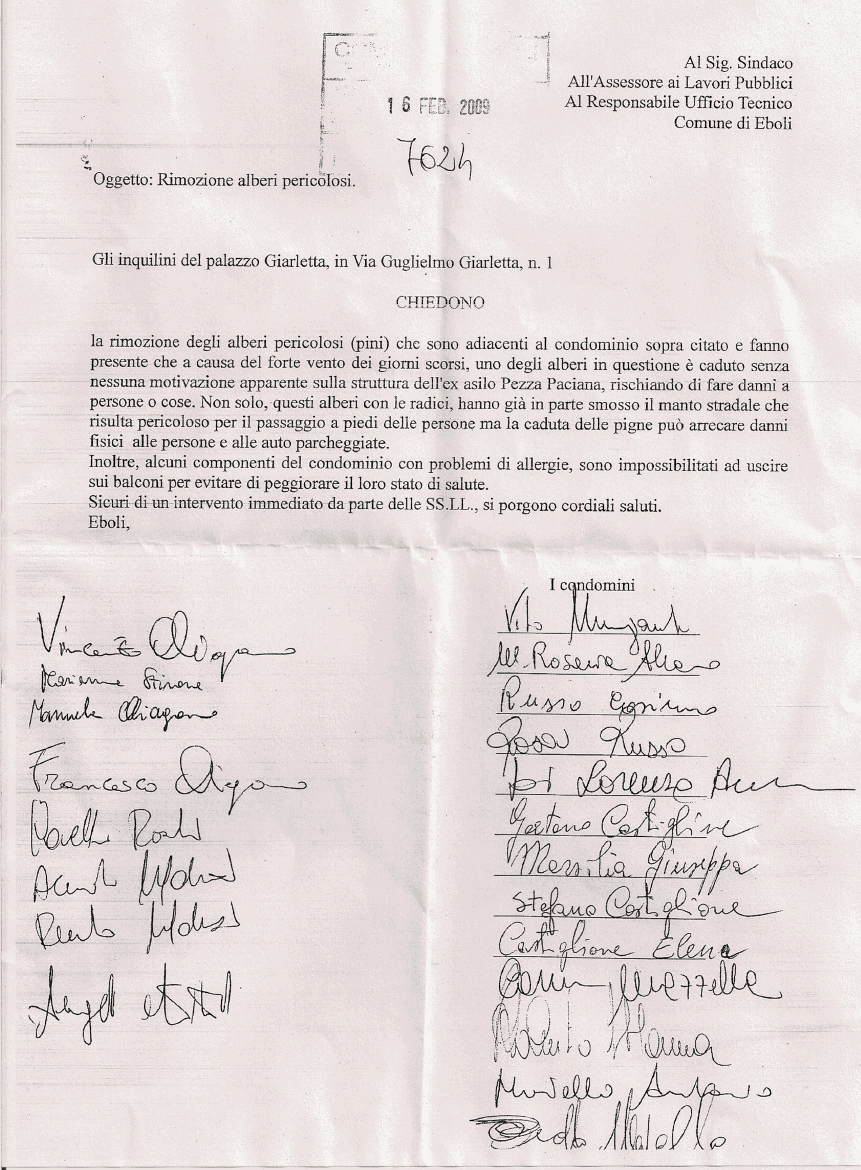 Al Sig. Sindaco
All'Assessore ai Lavori Pubblici
Al Responsabile Ufficio Tecnico
Comune di Eboli
16 FEB. 2009
7624
Oggetto: Rimozione alberi pericolosi.
Gli inquilini del palazzo Giarletta, in Via Guglielmo Giarletta, n. 1
CHIEDONO
la rimozione degli alberi pericolosi (pini) che sono adiacenti al condominio sopra citato e fanno
presente che a causa del forte vento dei giorni scorsi, uno degli alberi in questione è caduto senza
nessuna motivazione apparente sulla struttura dell'ex asilo Pezza Paciana, rischiando di fare danni a
persone o cose. Non solo, questi alberi con le radici, hanno già in parte smosso il manto stradale che
risulta pericoloso per il passaggio a piedi delle persone ma la caduta delle pigne può arrecare danni
fisici alle persone e alle auto parcheggiate.
Inoltre, alcuni componenti del condominio con problemi di allergie, sono impossibilitati ad uscire
sui balconi per evitare di peggiorare il loro stato di salute.
Sicuri di un intervento immediato da parte delle SS.LL., si porgono cordiali saluti.
Eboli,
I condomini
Vito
Vincenzo
Russo
Manuela
Rosa Russo
Francesco
Lorenzo
Gaetano Castiglione
Giuseppa
Stefano Castiglione
Castiglione Elena
Roberto